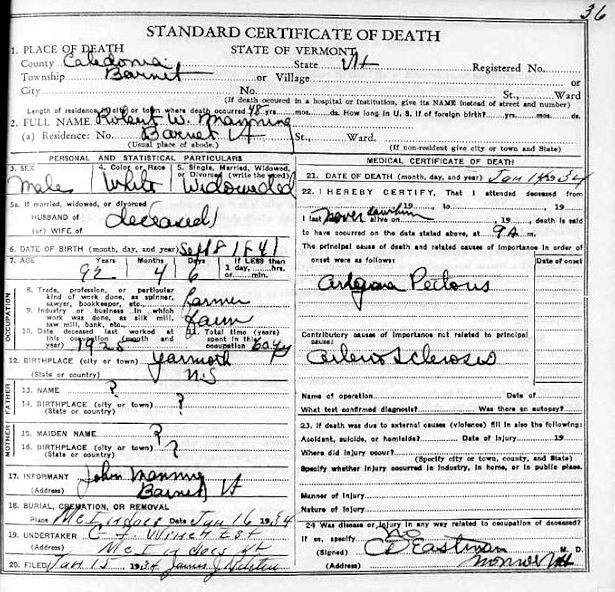 36
STANDARD CERTIFICATE OF DEATH
STATE OF VERMONT
1. PLACE OF DEATH
County Caledonia State Vt Registered No.
Township Barnet or Village
City No. St., Ward
(If death occured in a hospital or institution, give its NAME instead of street and number)
Length of residence: (city) or town where death occurred 48 yrs. mos. ds. How long in U. S. If of foreign birth? yrs. mos. ds.
2. FULL NAME Robert W. Manning
(a) Residence: No. Barnet Vt St., Ward.
(Usual place of abode.) (If non-resident give city or town and State)
PERSONAL AND STATISTICAL PARTICULARS
3. SEX 4. Color or Race 5. Single, Married, Widowed, or Divorced (write the word)
Male White Widowded
5a. If married, widowed, or divorced
HUSBAND of
or WIFE of deceased
6. DATE OF BIRTH (month, day, and year) Sept 8 1841
7. AGE Years Months Days If LESS than 1 day, hrs. or min.
92 4 6
OCCUPATION
8. Trade, profession, or particular kind of work done, as spinner, sawyer, bookkeeper, etc. farmer
9. Industry or business in which work was done, as silk mill, saw mill, bank, etc. farm
10. Date deceased last worked at this occupation (month and year) 1928 Total time (years) spent in this occupation 60 yrs
12. BIRTHPLACE (city or town) Yarmoth
(State or country) N.S
FATHER
13. NAME ?
14. BIRTHPLACE (city or town) ?
(State or country)
MOTHER
15. MAIDEN NAME ?
16. BIRTHPLACE (city or town) ?
(State or country)
17. INFORMANT John Manning
(Address) Barnet Vt
18. BURIAL, CREMATION, OR REMOVAL
Place McIndoes Date Jan 16 1934
19. UNDERTAKER
(Address) McIndoes Vt
20. FILED Jan 15 1934 James J
MEDICAL CERTIFICATE OF DEATH
21. DATE OF DEATH (month, day, and year) Jan 14 1934
22. I HEREBY CERTIFY, That I attended deceased from
, 19 , to , 19
I last never saw him alive on , 19 , death is said
to have occurred on the date stated above, at 9 A m.
The principal cause of death and related causes of importance in order of
onset were as follows: Date of onset
Angina Pectoris
Contributory causes of importance not related to principal
cause:
Arterio Sclerosis
Name of operation Date of
What test confirmed diagnosis? Was there an autopsy?
23. If death was due to external causes (violence) fill in also the following:
Accident, suicide, or homicide? Date of Injury 19
Where did injury occur?
(Specify city or town, county, and State)
Specify whether injury occurred in industry, in home, or in public place.
Manner of Injury
Nature of Injury
24 Was disease or injury in any way related to occupation of deceased?
If so, specify no
(Signed) Eastman M. D.
(Address) Monroe NH